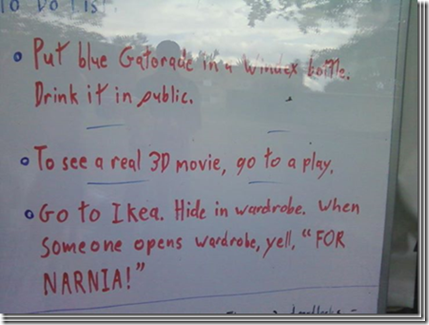 To Do List
• Put blue Gatorade in a Windex bottle.
Drink it in public.
• To see a real 3D movie, go to a play.
• Go to Ikea. Hide in wardrobe. When
someone opens wardrobe, yell, "FOR
NARNIA!"